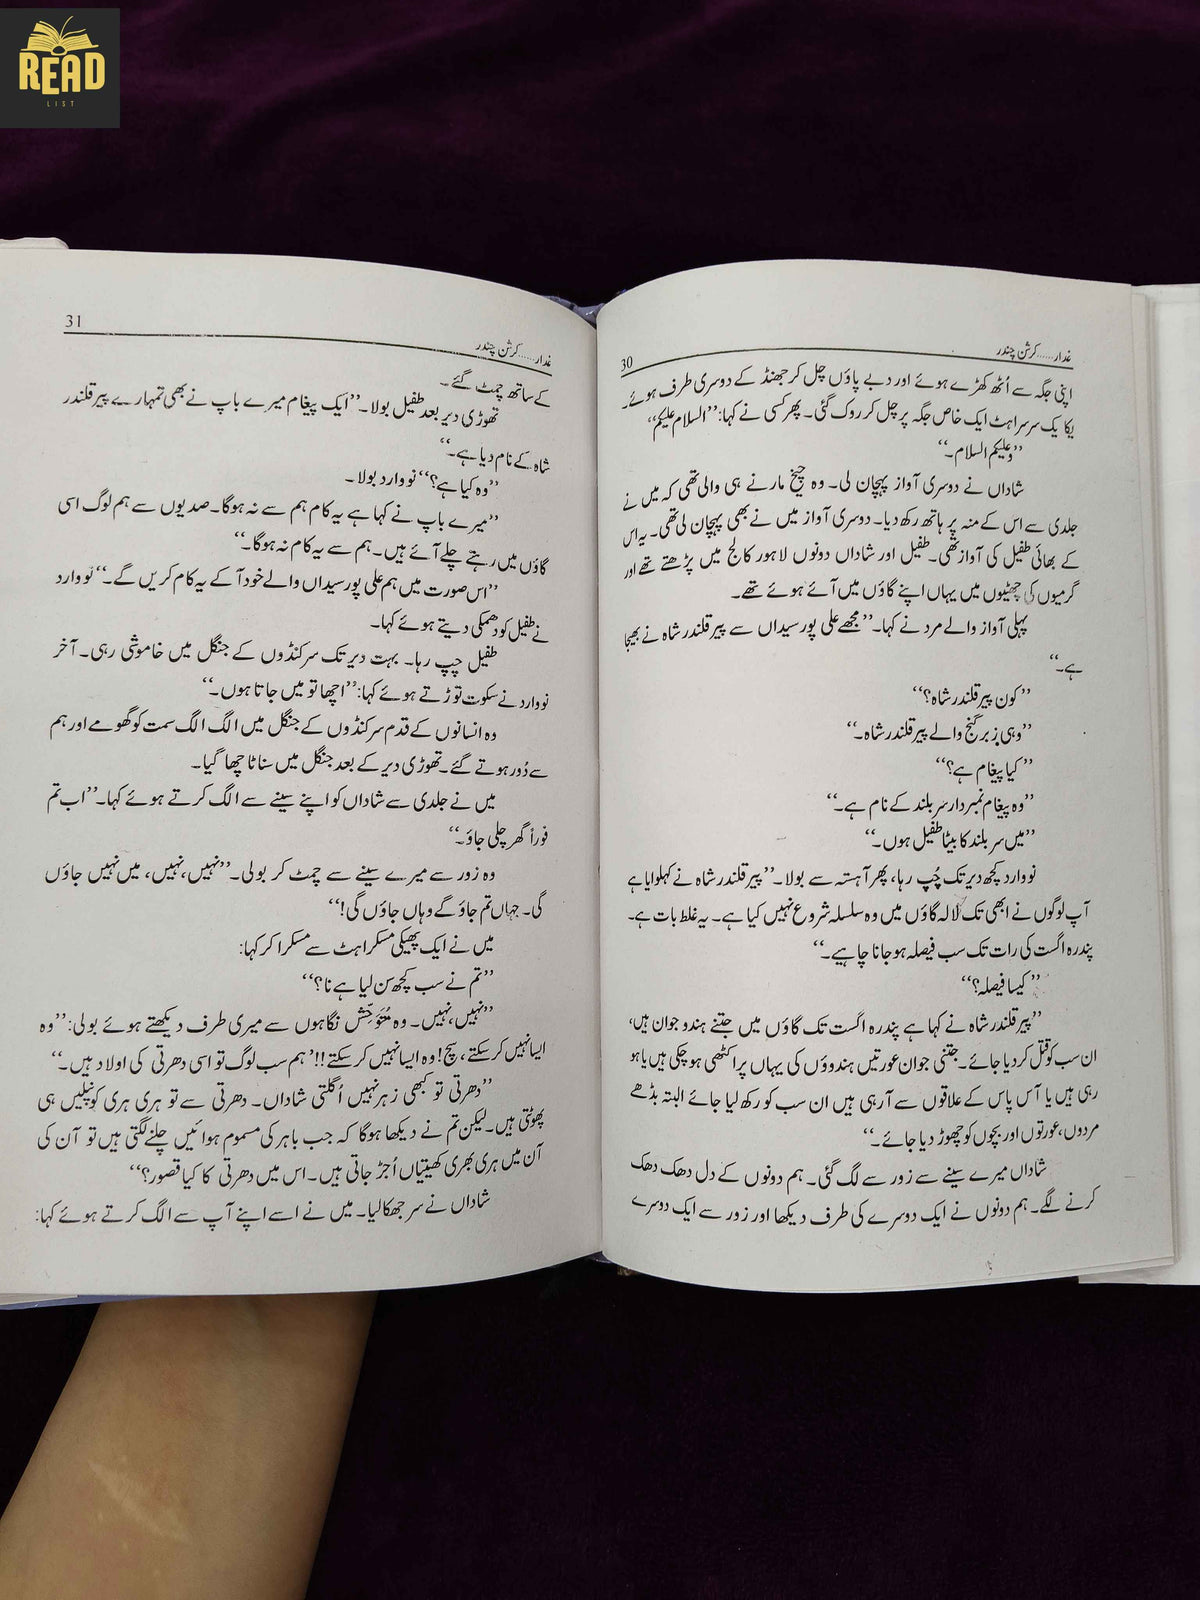 READ
LIST
غدار.....کرشن چندر
30
اپنی جگہ سے اُٹھ کھڑے ہوئے اور دبے پاؤں چل کر جھنڈ کے دوسری طرف ہوئے۔
یکایک سرسراہٹ ایک خاص جگہ پر چل کر روک گئی۔ پھر کسی نے کہا: ’’السلام علیکم‘‘
’’وعلیکم السلام۔‘‘
شاداں نے دوسری آواز پہچان لی۔ وہ چیخ مارنے ہی والی تھی کہ میں نے
جلدی سے اس کے منہ پر ہاتھ رکھ دیا۔ دوسری آواز میں نے بھی پہچان لی تھی۔ یہ اس
کے بھائی طفیل کی آواز تھی۔ طفیل اور شاداں دونوں لاہور کالج میں پڑھتے تھے اور
گرمیوں کی چھٹیوں میں یہاں اپنے گاؤں میں آئے ہوئے تھے۔
پہلی آواز والے مرد نے کہا۔ ’’مجھے علی پور سیداں سے پیر قلندر شاہ نے بھیجا
ہے۔‘‘
’’کون پیر قلندر شاہ؟‘‘
’’وہی بزبر گنج والے پیر قلندر شاہ۔‘‘
’’کیا پیغام ہے؟‘‘
’’وہ پیغام نمبردار سربلند کے نام ہے۔‘‘
’’میں سربلند کا بیٹا طفیل ہوں۔‘‘
نووارد کچھ دیر تک چُپ رہا، پھر آہستہ سے بولا۔ ’’پیر قلندر شاہ نے کہلوایا ہے
آپ لوگوں نے ابھی تک لالہ گاؤں میں وہ سلسلہ شروع نہیں کیا ہے۔ یہ غلط بات ہے۔
پندرہ اگست کی رات تک سب فیصلہ ہو جانا چاہیے۔‘‘
’’کیسا فیصلہ؟‘‘
’’پیر قلندر شاہ نے کہا ہے پندرہ اگست تک گاؤں میں جتنے ہندو جوان ہیں،
ان سب کو قتل کر دیا جائے۔ جتنی جوان عورتیں ہندوؤں کی یہاں پر اکٹھی ہو چکی ہیں یا ہو
رہی ہیں یا آس پاس کے علاقوں سے آ رہی ہیں ان سب کو رکھ لیا جائے البتہ بڈھے
مردوں، عورتوں اور بچوں کو چھوڑ دیا جائے۔‘‘
شاداں میرے سینے سے زور سے لگ گئی۔ ہم دونوں کے دل دھک دھک
کرنے لگے۔ ہم دونوں نے ایک دوسرے کی طرف دیکھا اور زور سے ایک دوسرے
غدار.....کرشن چندر
31
کے ساتھ چمٹ گئے۔
تھوڑی دیر بعد طفیل بولا۔ ’’ایک پیغام میرے باپ نے بھی تمہارے پیر قلندر
شاہ کے نام دیا ہے۔‘‘
’’وہ کیا ہے؟‘‘ نووارد بولا۔
’’میرے باپ نے کہا ہے یہ کام ہم سے نہ ہوگا۔ صدیوں سے ہم لوگ اسی
گاؤں میں رہتے چلے آئے ہیں۔ ہم سے یہ کام نہ ہوگا۔‘‘
’’اس صورت میں ہم علی پور سیداں والے خود آ کے یہ کام کریں گے۔‘‘ نووارد
نے طفیل کو دھمکی دیتے ہوئے کہا۔
طفیل چپ رہا۔ بہت دیر تک سرکنڈوں کے جنگل میں خاموشی رہی۔ آخر
نووارد نے سکوت توڑتے ہوئے کہا: ’’اچھا تو میں جاتا ہوں۔‘‘
وہ انسانوں کے قدم سرکنڈوں کے جنگل میں الگ الگ سمت کو گھومے اور ہم
سے دُور ہوتے گئے۔ تھوڑی دیر کے بعد جنگل میں سناٹا چھا گیا۔
میں نے جلدی سے شاداں کو اپنے سینے سے الگ کرتے ہوئے کہا۔ ’’اب تم
فوراً گھر چلی جاؤ۔‘‘
وہ زور سے میرے سینے سے چمٹ کر بولی۔ ’’نہیں، نہیں، میں نہیں جاؤں
گی۔ جہاں تم جاؤ گے وہاں جاؤں گی!‘‘
میں نے ایک پھیکی مسکراہٹ سے مسکرا کر کہا:
’’تم نے سب کچھ سن لیا ہے نا؟‘‘
’’نہیں، نہیں۔ وہ مُتَوَحِّش نگاہوں سے میری طرف دیکھتے ہوئے بولی: ’’وہ
ایسا نہیں کر سکتے، سچ! وہ ایسا نہیں کر سکتے!!‘ ہم سب لوگ تو اسی دھرتی کی اولاد ہیں۔‘‘
’’دھرتی تو کبھی زہر نہیں اُگلتی شاداں۔ دھرتی سے تو ہری ہری کونپلیں ہی
پھوٹتی ہیں۔ لیکن تم نے دیکھا ہوگا کہ جب باہر کی مسموم ہوائیں چلنے لگتی ہیں تو آن کی
آن میں ہری بھری کھیتیاں اُجڑ جاتی ہیں۔ اس میں دھرتی کا کیا قصور؟‘‘
شاداں نے سر جھکا لیا۔ میں نے اسے اپنے آپ سے الگ کرتے ہوئے کہا: